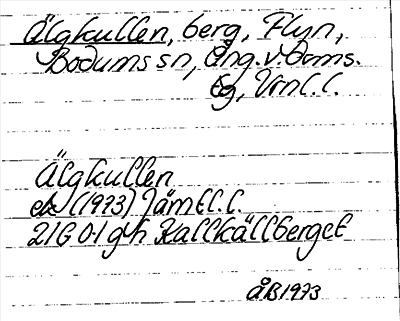 Älgkullen, berg, Flyn,
Bodums sn, Ång. v. Doms.
sg, Vrnl. l.
Älgkullen
ek (1973) Jämtl. l.
21G 0-1 gh Kallkällberget
ÅB 1973